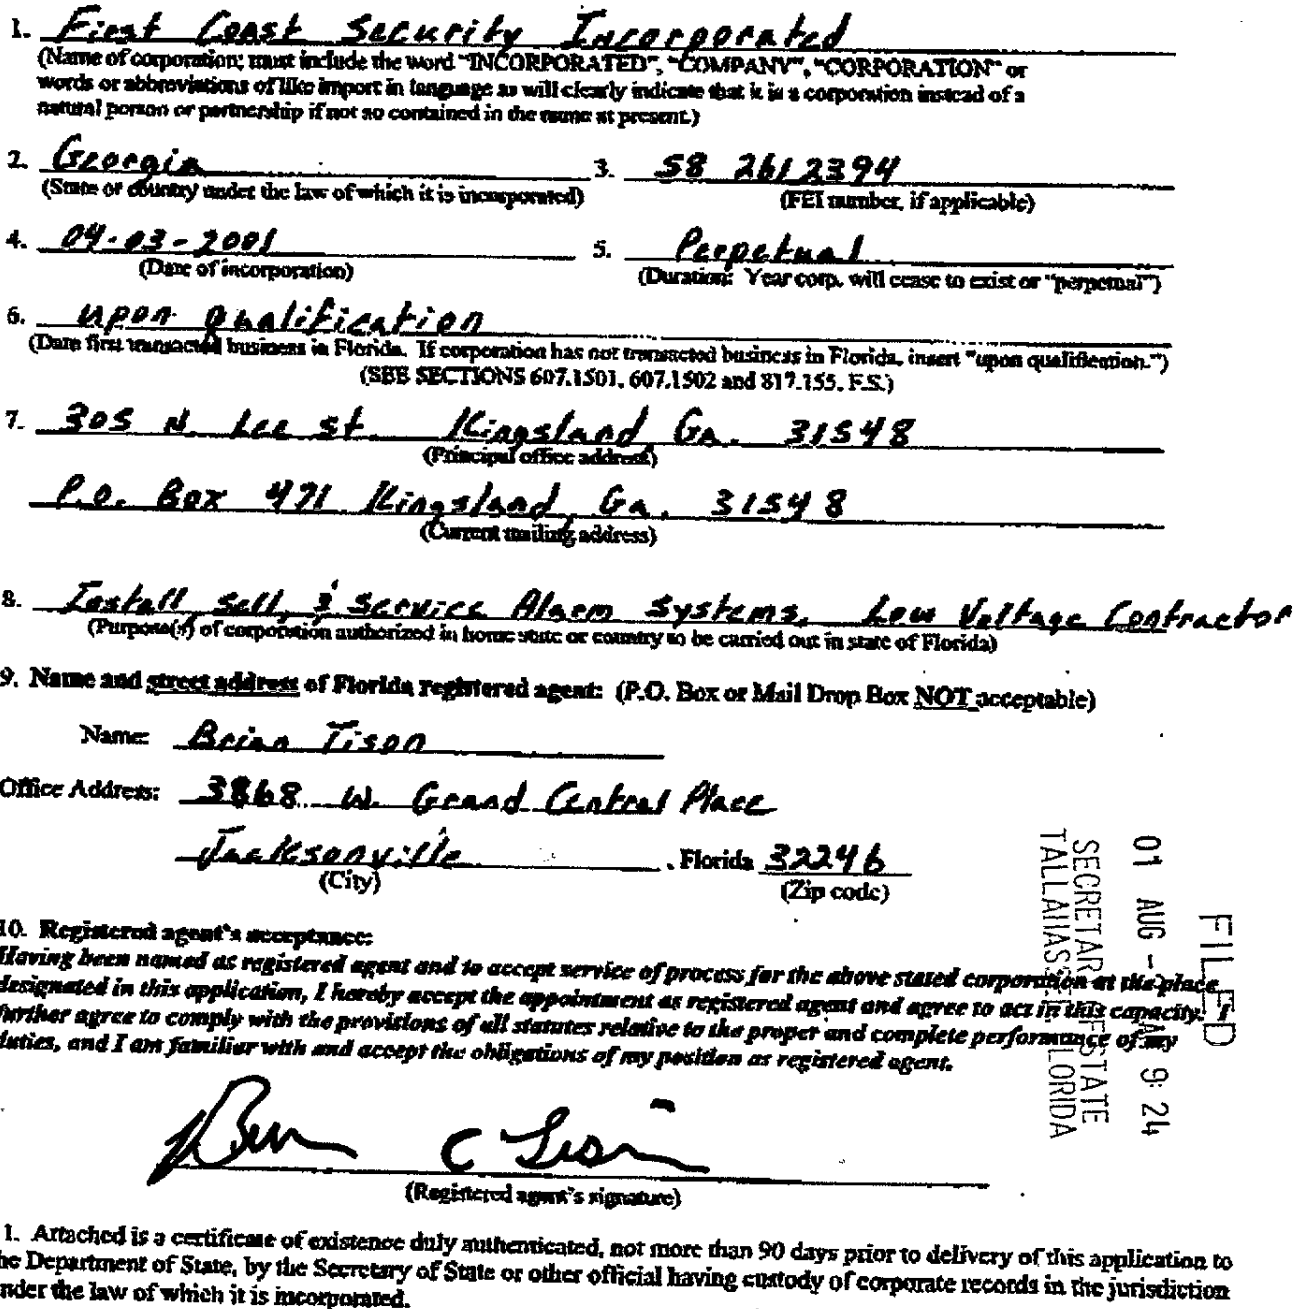 1. First Coast Security Incorporated
(Name of corporation; must include the word "INCORPORATED", "COMPANY", "CORPORATION" or
words or abbreviations of like import in language as will clearly indicate that it is a corporation instead of a
natural person or partnership if not so contained in the name at present.)
2. Georgia 3. 58 2612394
(State or country under the law of which it is incorporated) (FEI number, if applicable)
4. 04-03-2001 5. Perpetual
(Date of incorporation) (Duration: Year corp. will cease to exist or "perpetual")
6. upon qualification
(Date first transacted business in Florida. If corporation has not transacted business in Florida, insert "upon qualification.")
(SEE SECTIONS 607.1501, 607.1502 and 817.155, F.S.)
7. 305 N. Lee St. Kingsland, Ga. 31548
(Principal office address)
P.O. Box 471 Kingsland, Ga. 31548
(Current mailing address)
8. Install, Sell, & Service Alarm Systems, Low Voltage Contractor
(Purpose(s) of corporation authorized in home state or country to be carried out in state of Florida)
9. Name and street address of Florida registered agent: (P.O. Box or Mail Drop Box NOT acceptable)
Name: Brian Tison
Office Address: 3868 W. Grand Central Place
Jacksonville, Florida 32246
(City) (Zip code)
10. Registered agent's acceptance:
Having been named as registered agent and to accept service of process for the above stated corporation at the place
designated in this application, I hereby accept the appointment as registered agent and agree to act in this capacity. I
further agree to comply with the provisions of all statutes relative to the proper and complete performance of my
duties, and I am familiar with and accept the obligations of my position as registered agent.
Brian C Tison
(Registered agent's signature)
1. Attached is a certificate of existence duly authenticated, not more than 90 days prior to delivery of this application to
he Department of State, by the Secretary of State or other official having custody of corporate records in the jurisdiction
nder the law of which it is incorporated.
FILED
01 AUG - AM 9:24
SECRETARY OF STATE
TALLAHASSEE FLORIDA